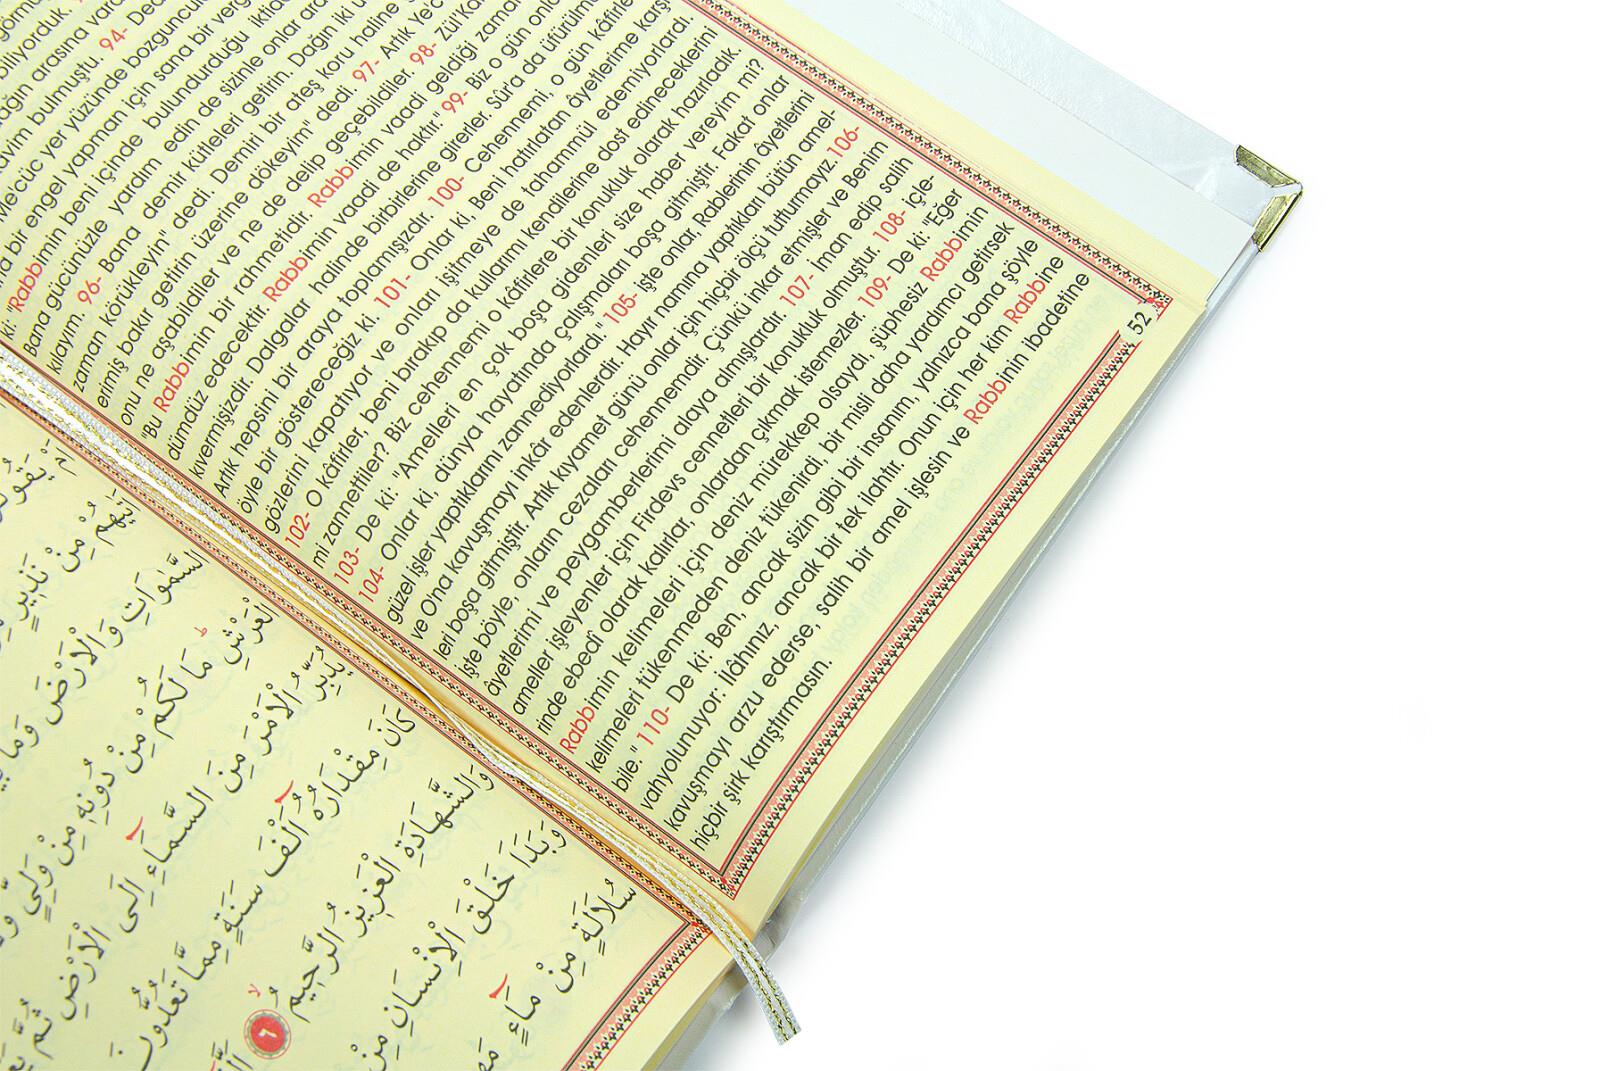 görmüş
biliyorduk.
94-
dağın arasına vara
kavim bulmuştu. 94-
Mecüc yer yüzünde bozguncul
na bir engel yapman için sana bir verg
ki "Rabbimin beni içinde bulundurduğu iktida
Bana gücünüzle yardım edin de sizinle onlar ara
kılayım. 96- Bana demir kütleleri getirin. Dağın iki u
zaman "körükleyin" dedi. Demiri bir ateş koru haline g
erimiş bakır getirin üzerine dökeyim" dedi. 97- Artık Ye'c
onu ne aşabildiler ve ne de delip geçebildiler. 98- Zül'Ka
"Bu Rabbimin bir rahmetidir. Rabbimin vaadi geldiği zama
dümdüz edecektir. Rabbimin vaadi de haktır." 99- Biz o gün onla
kıvermişizdir. Dalgalar halinde birbirlerine girerler. Sûra da üfürülm
Artık hepsini bir araya toplamışızdır. 100- Cehennemi, o gün kâfirle
öyle bir göstereceğiz ki. 101- Onlar ki, Beni hatırlatan âyetlerime karşı
gözlerini kapatıyor ve onları işitmeye de tahammül edemiyorlardı.
102- O kâfirler, beni bırakıp da kullarımı kendilerine dost edineceklerini
mi zannettiler? Biz cehennemi o kâfirlere bir konukluk olarak hazırladık.
103- De ki: "Amelleri en çok boşa gidenleri size haber vereyim mi?
104- Onlar ki, dünya hayatında çalışmaları boşa gitmiştir. Fakat onlar
güzel işler yaptıklarını zannediyorlardı." 105- İşte onlar, Rablerinin âyetlerini
ve O'na kavuşmayı inkâr edenlerdir. Hayır namına yaptıkları bütün amel-
leri boşa gitmiştir. Artık kıyamet günü onlar için hiçbir ölçü tutturmayız. 106-
İşte böyle, onların cezaları cehennemdir. Çünkü inkar etmişler ve Benim
âyetlerimi ve peygamberlerimi alaya almışlardır. 107- İman edip salih
ameller işleyenler için Firdevs cennetleri bir konukluk olmuştur. 108- İçle-
rinde ebedî olarak kalırlar, onlardan çıkmak istemezler. 109- De ki: "Eğer
Rabbimin kelimeleri için deniz mürekkep olsaydı, şüphesiz Rabbimin
kelimeleri tükenmeden deniz tükenirdi, bir misli daha yardımcı getirsek
bile." 110- De ki: Ben, ancak sizin gibi bir insanım, yalnızca bana şöyle
vahyolunuyor: İlâhınız, ancak bir tek ilahtır. Onun için her kim Rabbine
kavuşmayı arzu ederse, salih bir amel işlesin ve Rabbinin ibadetine
hiçbir şirk karıştırmasın.
52
مِنْ نَذِيرٍ
السَّمٰوَاتِ وَالْاَرْضَ وَمَا
الْعَرْشِ مَا لَكُمْ مِنْ دُونِهٖ مِنْ وَلِيٍّ
يُدَبِّرُ الْاَمْرَ مِنَ السَّمَٓاءِ اِلَى الْاَرْضِ ثُمَّ
كَانَ مِقْدَارُهُٓ اَلْفَ سَنَةٍ مِمَّا تَعُدُّونَ
وَالشَّهَادَةِ الْعَزِيزُ الرَّحِيمُ ٦
وَبَدَاَ خَلْقَ الْاِنْسَانِ مِنْ
سُلَالَةٍ مِنْ مَٓاءٍ